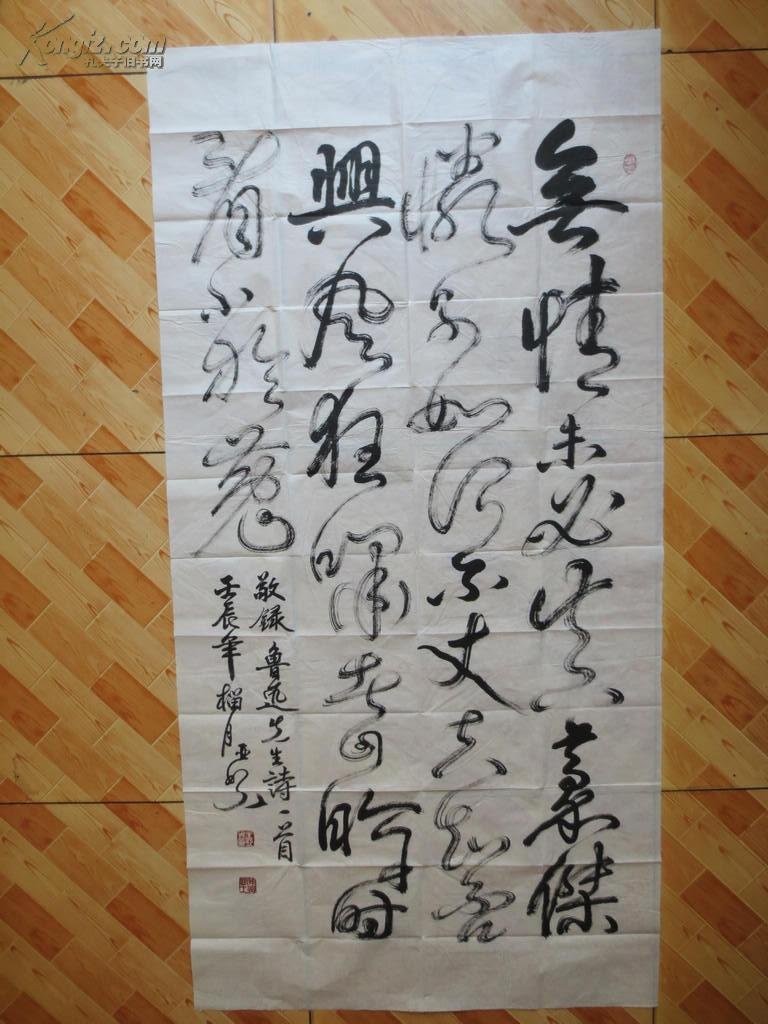 無情未必真豪傑
憐子如何不丈夫知否
興風狂嘯者回眸时
看小於菟
敬録魯迅先生詩一首
壬辰年榴月
Kongfz.com
孔夫子旧书网